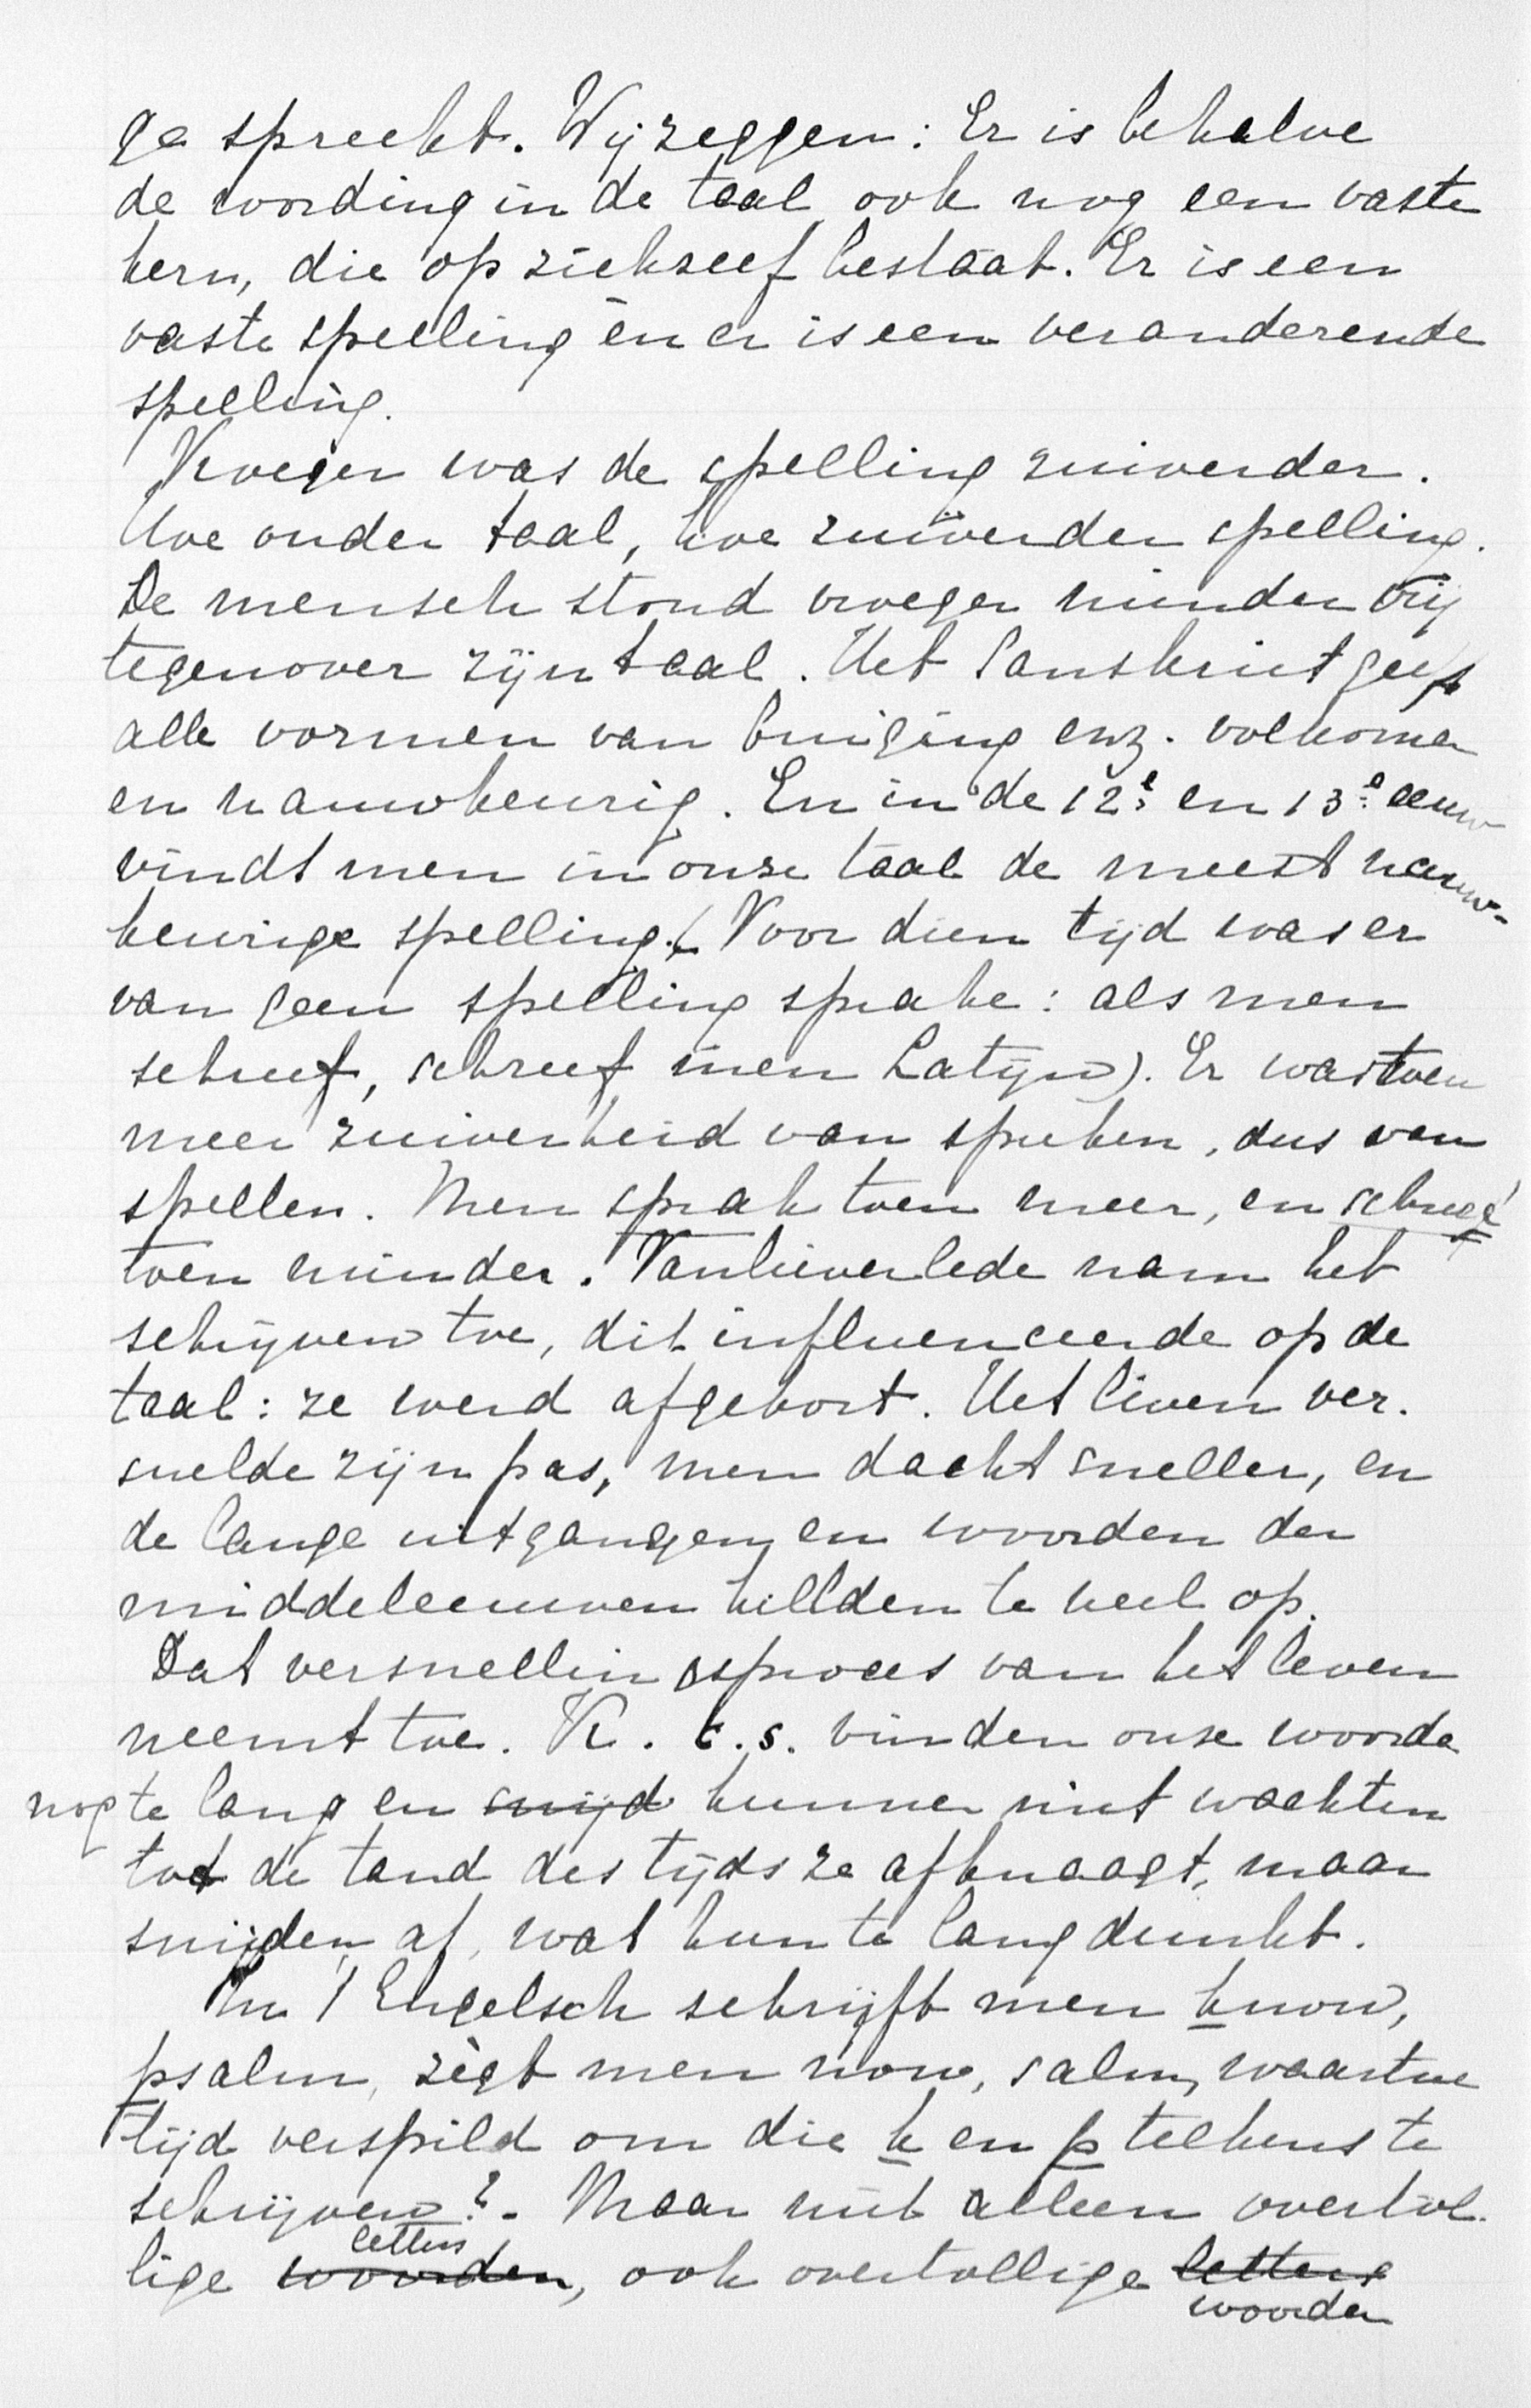 ge spreekt. Wij zeggen: Er is behalve
de wording in de taal ook nog een vaste
kern, die op zichzelf bestaat. Er is een
vaste spelling èn er is een veranderende
spelling.
Vroeger was de spelling zuiverder.
Hoe ouder taal, hoe zuiverder spelling.
De mensch stond vroeger minder vrij
tegenover zijn taal. Het Sanskriet geeft
alle vormen van buiging enz. volkomen
en nauwkeurig. En in de 12e en 13e eeuw
vindt men in onze taal de meest nauw-
keurige spelling. (Voor dien tijd was er
van geen spelling sprake: als men
schreef, schreef men Latijn). Er was toen
meer zuiverheid van spreken, dus van
spellen. Men sprak toen meer, en schreef
toen minder. Vanlieverlede nam het
schrijven toe, dit influenceerde op de
taal: ze werd afgekort. Het leven ver-
snelde zijn pas, men dacht sneller, en
de lange uitgangen en woorden der
middeleeuwen hielden te veel op.
Dat versnellingsproces van het leven
neemt toe. K. c.s. vinden onze woorden
nog te lang en snijd kunnen niet wachten
tot de tand des tijds ze afknaagt, maar
snijden af, wat hun te lang dunkt.
In 't Engelsch schrijft men know,
psalm, zegt men now, salm, waartoe
tijd verspild om die k en p telkens te
schrijven?. Maar niet alleen overtol-
letters
lige woorden, ook overtollige letters
woorden